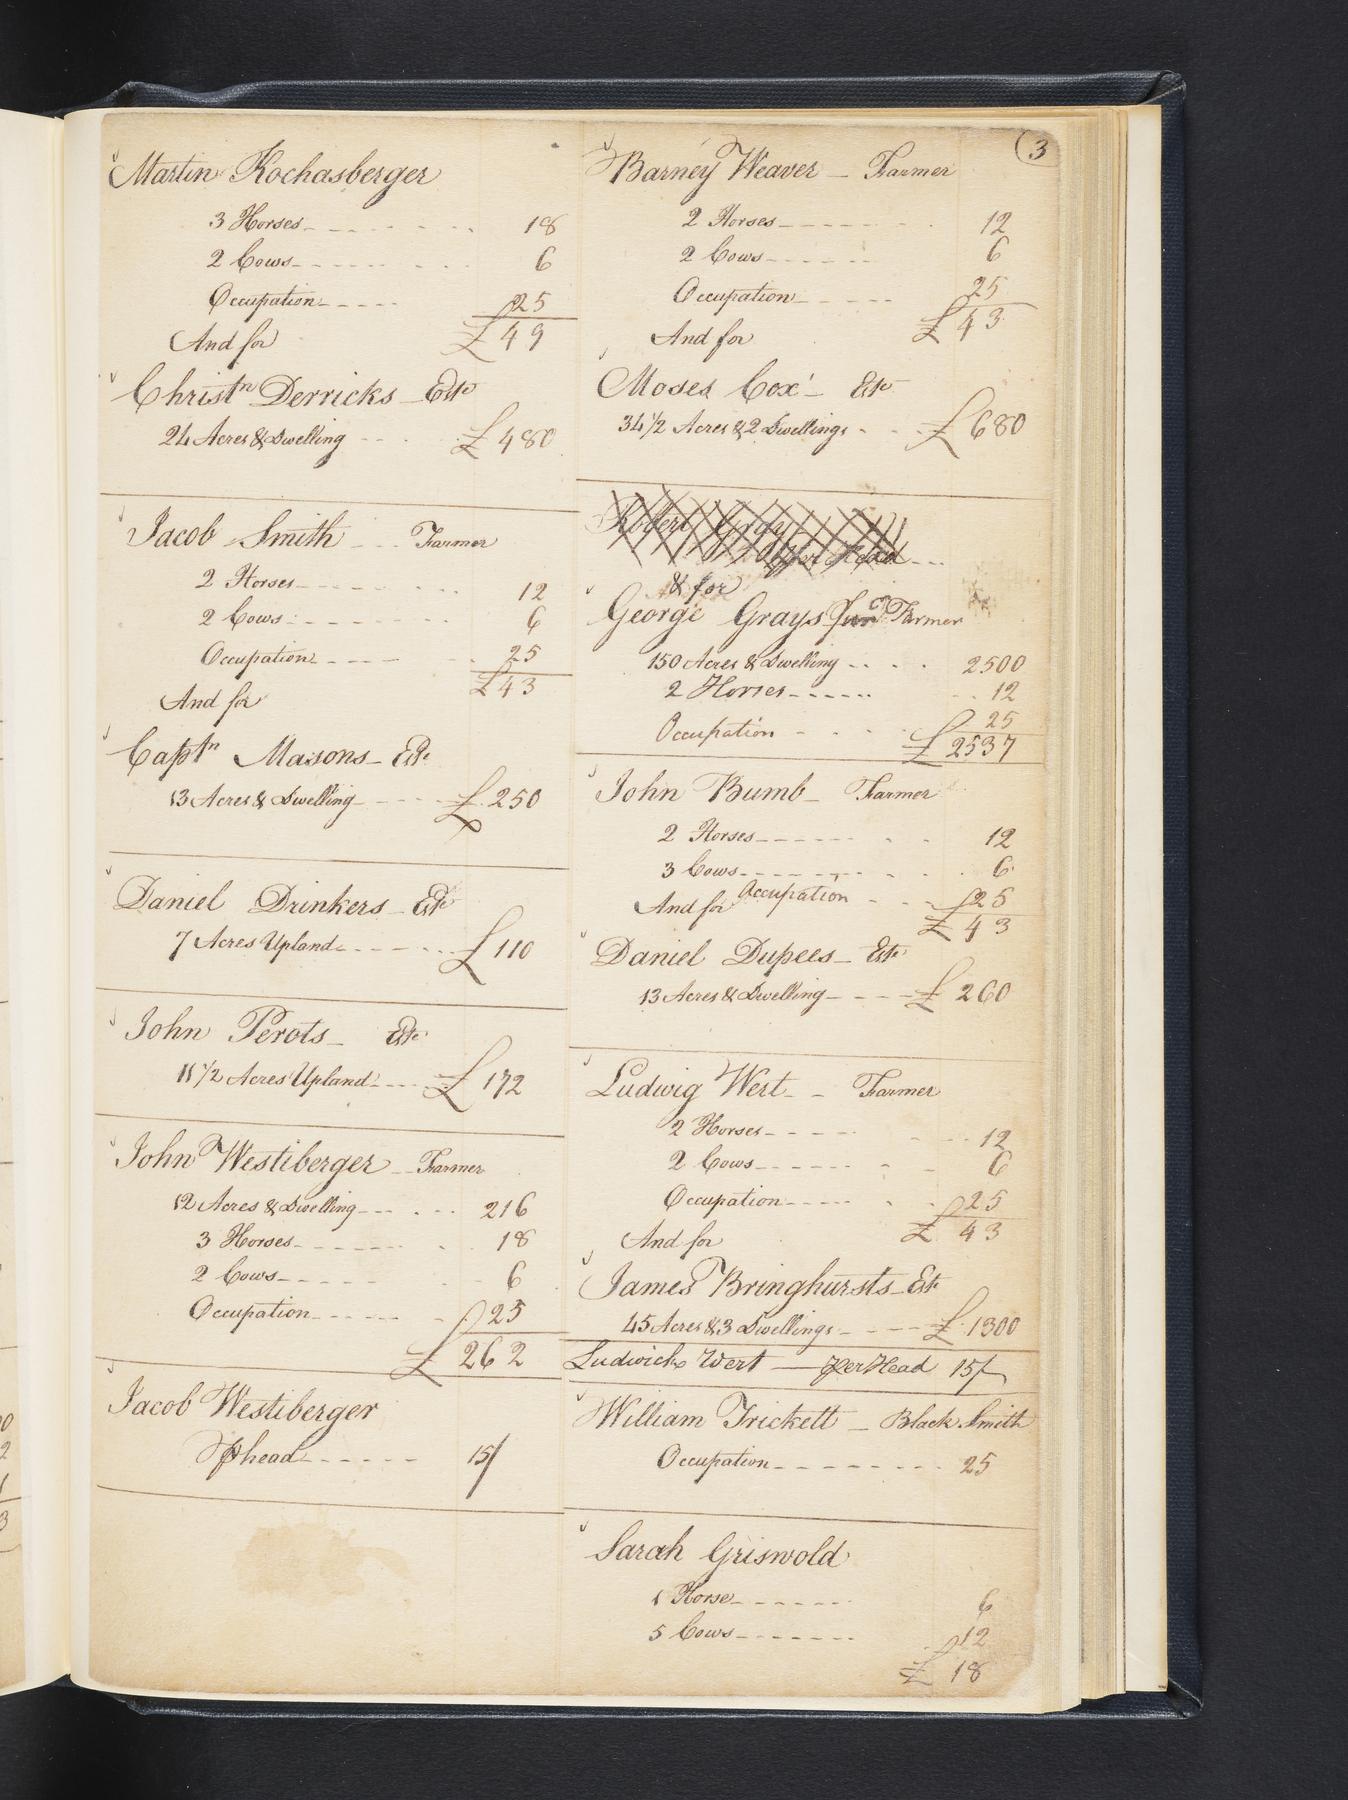 3
Martin Kochasberger
3 Horses 18
2 Cows 6
Occupation 25
£ 49
And for
Christn Derricks Este
24 Acres & Dwelling £ 480
Jacob Smith Farmer
2 Horses 12
2 Cows 6
Occupation 25
£ 43
And for
Captn Masons Este
13 Acres & Dwelling £ 250
Daniel Drinkers Este
7 Acres Upland £ 110
John Perots Este
11 1/2 Acres Upland £ 172
John Westiberger Farmer
12 Acres & Dwelling 216
3 Horses 18
2 Cows 6
Occupation 25
£ 262
Jacob Westiberger
P head 15/
Barney Weaver Farmer
2 Horses 12
2 Cows 6
Occupation 25
£ 43
And for
Moses Cox' Este
34 1/2 Acres & 2 Dwellings £ 680
Robert Gray
Head
& for
George Grays Junr Farmer
150 Acres & Dwelling 2500
2 Horses 12
Occupation 25
£ 2537
John Bumb Farmer
2 Horses 12
3 Cows 6
And for Occupation 25
£ 43
Daniel Dupees Este
13 Acres & Dwelling £ 260
Ludwig West Farmer
2 Horses 12
2 Cows 6
Occupation 25
£ 43
And for
James Bringhursts Este
45 Acres & 3 Dwellings £ 1300
Ludwick Wert per Head 15/
William Trickett Black Smith
Occupation 25
Sarah Griswold
1 Horse 6
5 Cows 12
£ 18